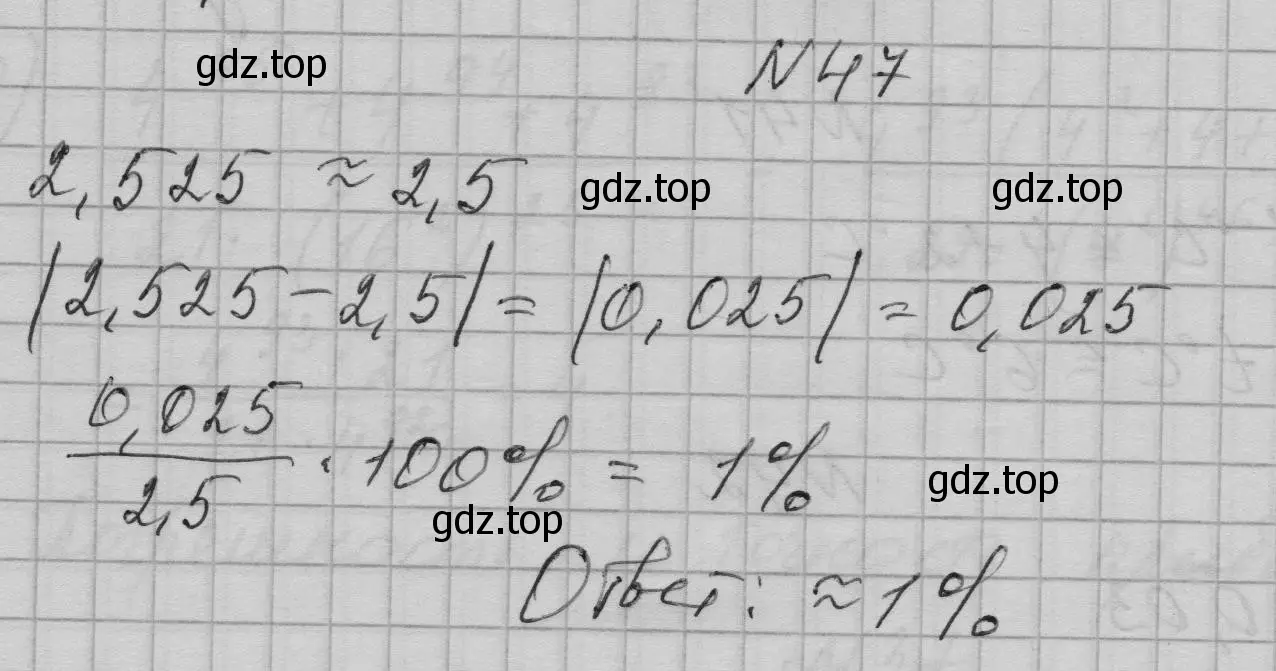 gdz.top
N 47
2,525 ≈ 2,5 gdz.top gdz.top
|2,525 - 2,5| = |0,025| = 0,025
0,025
/ 2,5 · 100% = 1% gdz.top
gdz.top
Ответ: ≈ 1%